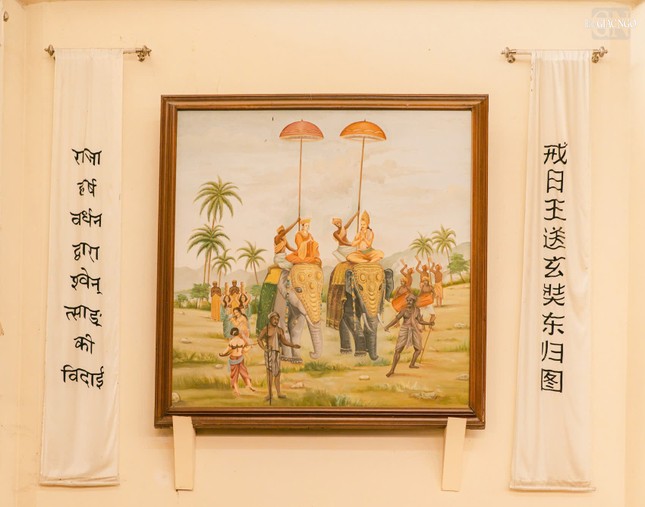 राजा
हर्ष
वर्धन
द्वारा
श्वेन्
त्साङ्
की
विदाई
戒日王送玄奘东归图
GIÁC NGỘ